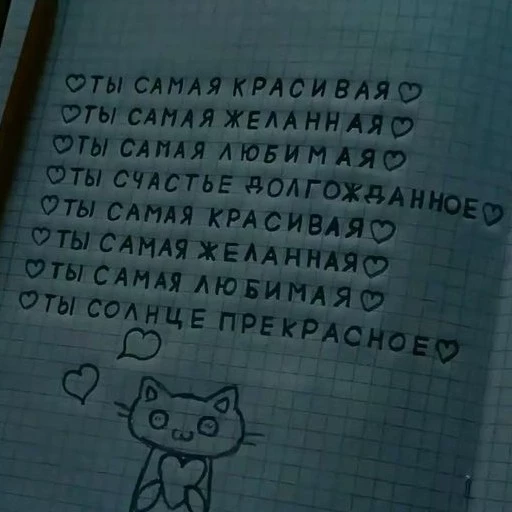 ♡ТЫ САМАЯ КРАСИВАЯ♡
♡ТЫ САМАЯ ЖЕЛАННАЯ♡
♡ТЫ САМАЯ ЛЮБИМАЯ♡
♡ТЫ СЧАСТЬЕ ДОЛГОЖДАННОЕ♡
♡ТЫ САМАЯ КРАСИВАЯ♡
♡ТЫ САМАЯ ЖЕЛАННАЯ♡
♡ТЫ САМАЯ ЛЮБИМАЯ♡
♡ТЫ СОЛНЦЕ ПРЕКРАСНОЕ♡